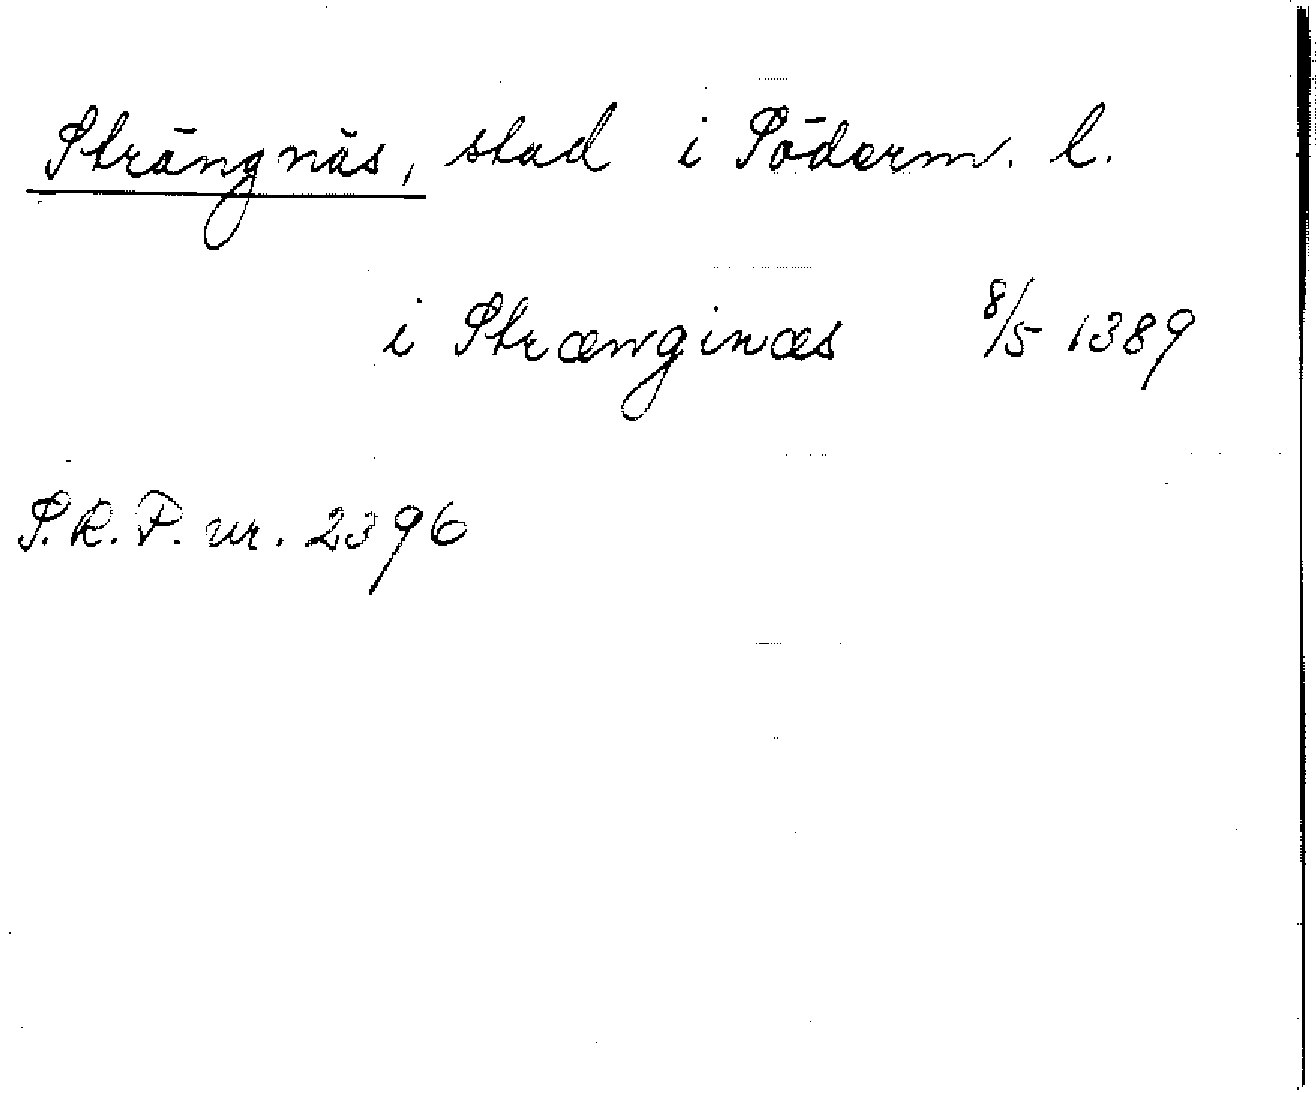 Strängnäs, stad i Söderm. l.
i Strænginæs 8/5 1389
S.R.P. nr. 2396